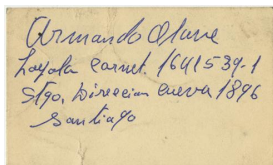 Armando Olave
Loyola Carnet. 1641539-1
Stgo, Direccion Cueva 1896
Santiago